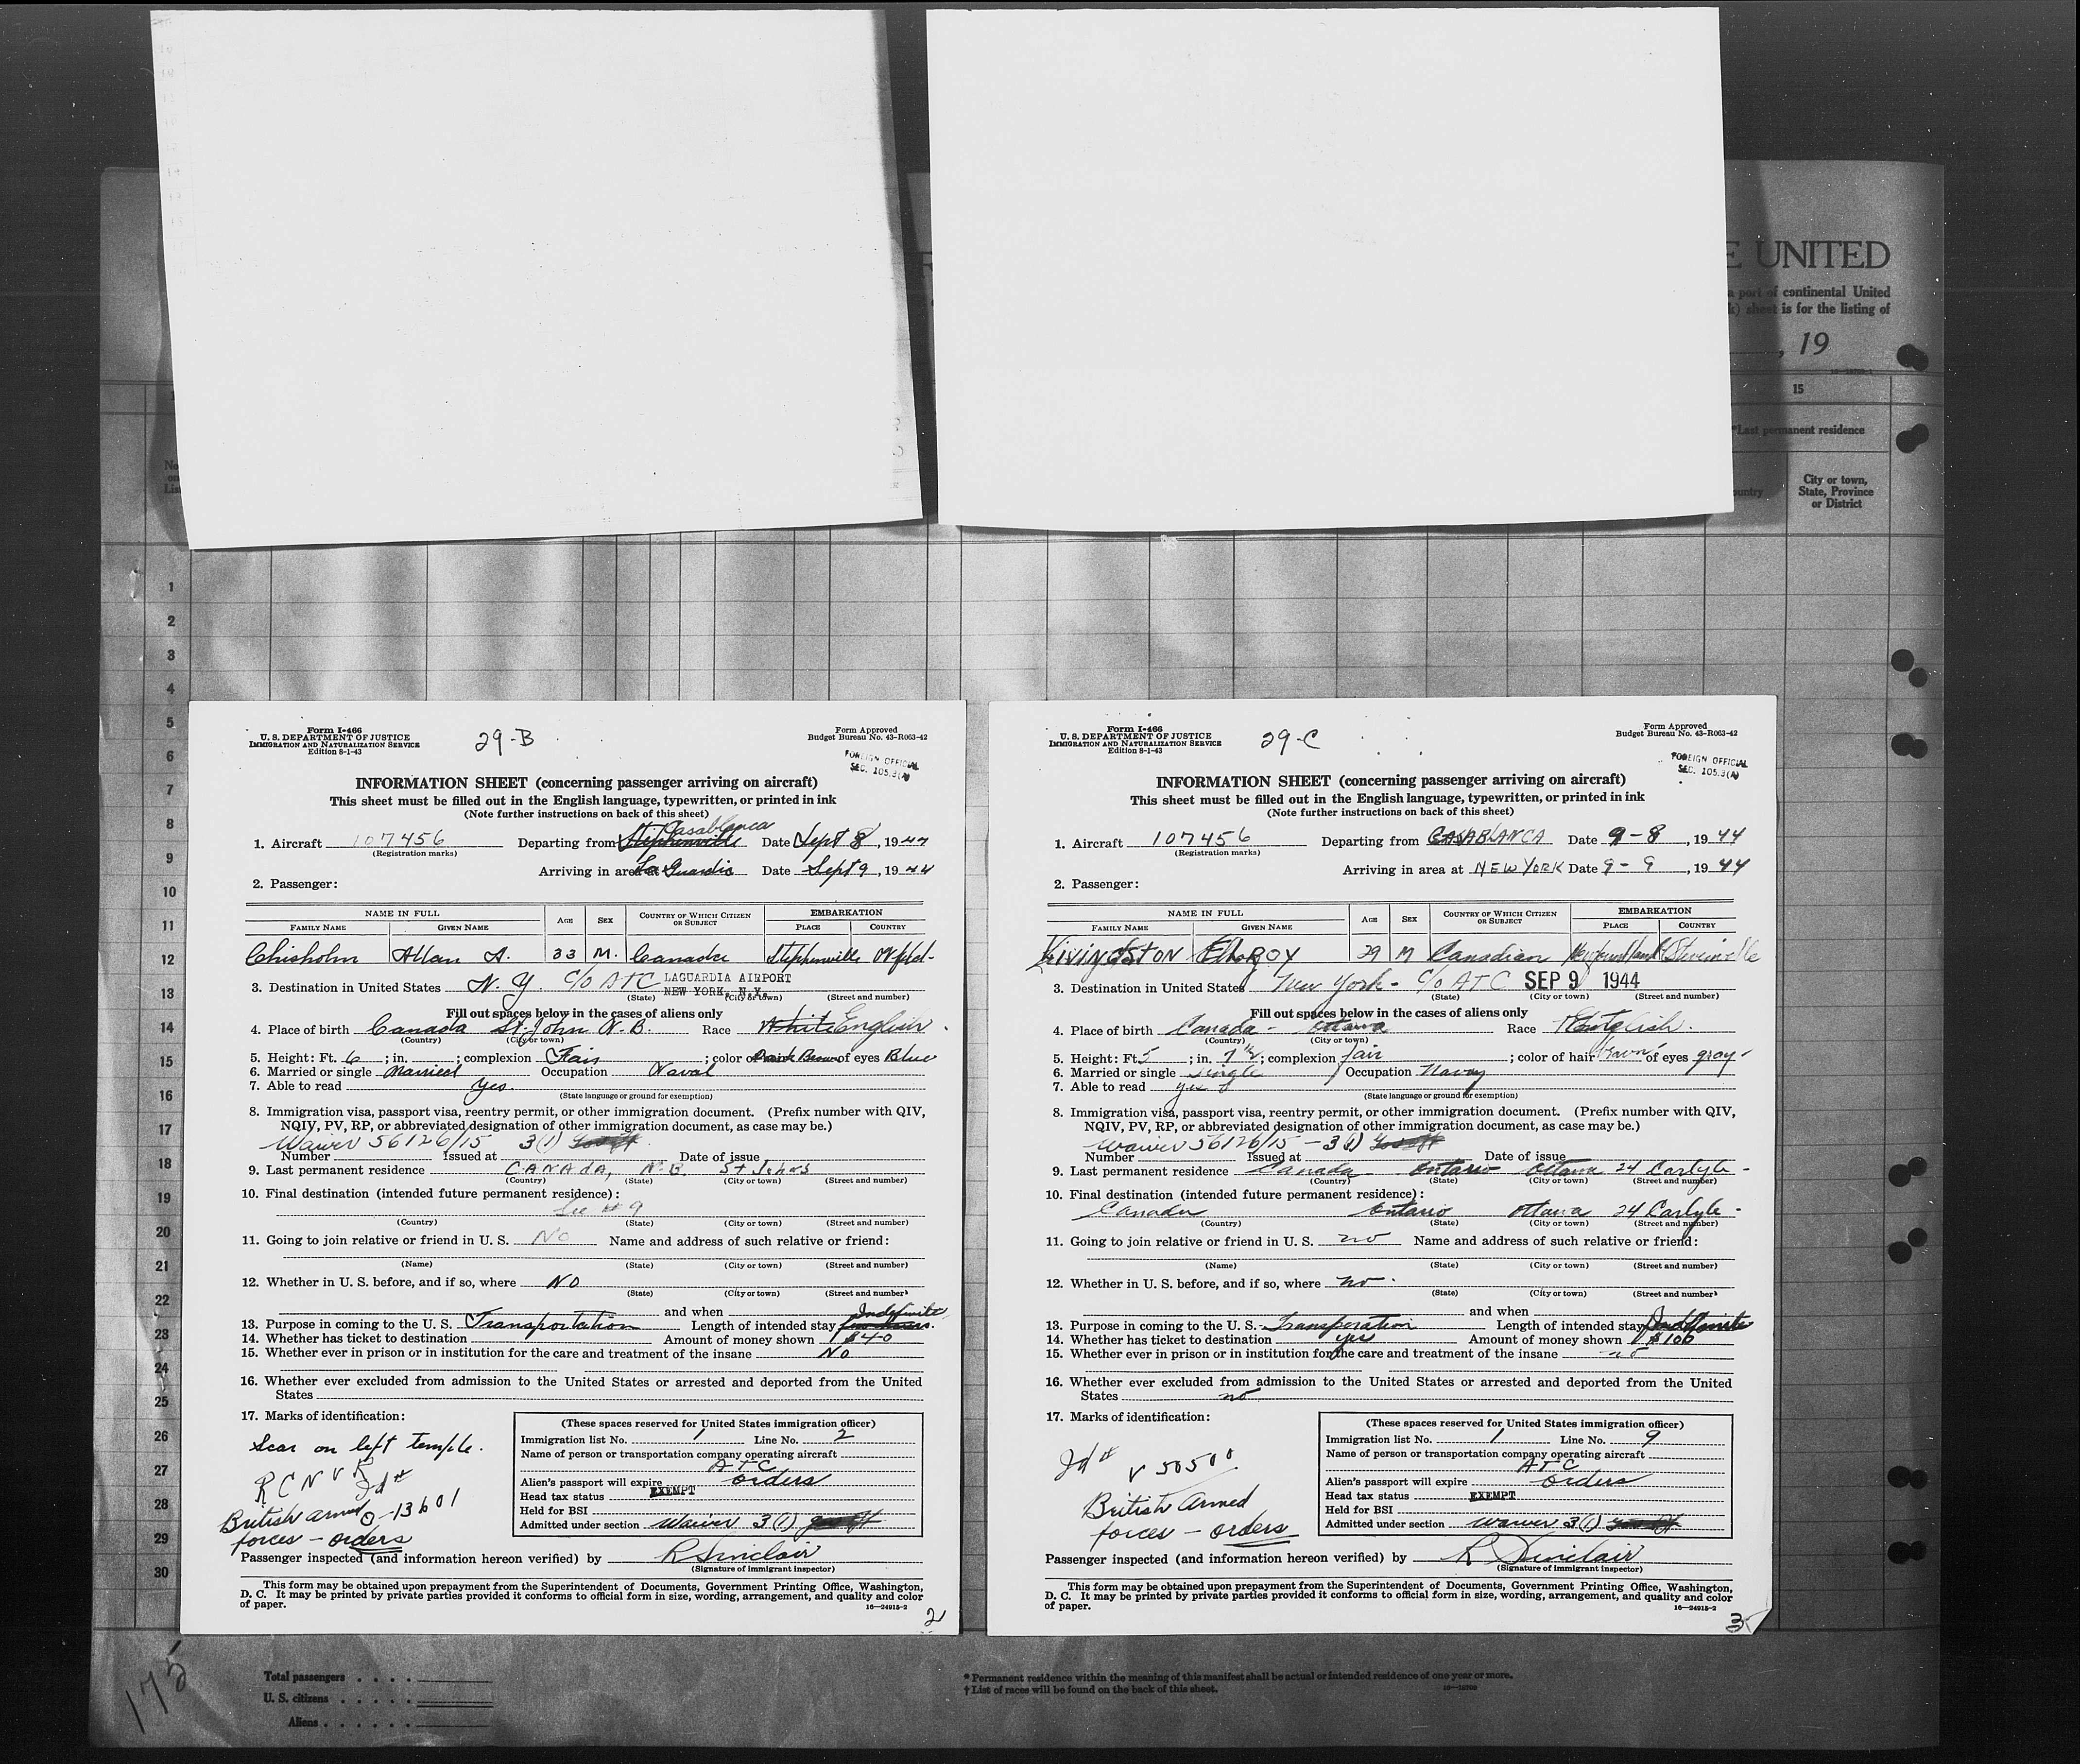 E UNITED
a port of continental United
k) sheet is for the listing of
, 19
15
*Last permanent residence
City or town,
State, Province
or District
1
2
3
4
5
6
7
8
9
10
11
12
13
14
15
16
17
18
19
20
21
22
23
24
25
26
27
28
29
30
Form I-466
U. S. DEPARTMENT OF JUSTICE
IMMIGRATION AND NATURALIZATION SERVICE
Edition 8-1-43
29-B
Form Approved
Budget Bureau No. 43-R063-42
FOREIGN OFFICIAL
SEC. 105.3(A)
INFORMATION SHEET (concerning passenger arriving on aircraft)
This sheet must be filled out in the English language, typewritten, or printed in ink
(Note further instructions on back of this sheet)
1. Aircraft 107456 Departing from Stephenville Casablanca Date Sept 8, 1944
(Registration marks)
Arriving in area at La Guardia Date Sept 9, 1944
2. Passenger:
NAME IN FULL AGE SEX COUNTRY OF WHICH CITIZEN OR SUBJECT EMBARKATION
FAMILY NAME GIVEN NAME PLACE COUNTRY
Chisholm Allan A. 33 M. Canada Stephenville Nfld-
3. Destination in United States N.Y. C/o ATC LAGUARDIA AIRPORT
NEW YORK, N.Y.
(State) (City or town) (Street and number)
Fill out spaces below in the cases of aliens only
4. Place of birth Canada St. John N.B. Race White English
(Country) (City or town)
5. Height: Ft. 6; in. ; complexion Fair; color of Dark Brown of eyes Blue
6. Married or single Married Occupation Naval
7. Able to read yes.
(State language or ground for exemption)
8. Immigration visa, passport visa, reentry permit, or other immigration document. (Prefix number with QIV,
NQIV, PV, RP, or abbreviated designation of other immigration document, as case may be.)
Waiver 56126/15 3(1)
Number Issued at Date of issue
9. Last permanent residence CANADA, N.B. St Johns
(Country) (State) (City or town) (Street and number)
10. Final destination (intended future permanent residence):
See #9
(Country) (State) (City or town) (Street and number)
11. Going to join relative or friend in U. S. No Name and address of such relative or friend:
(Name) (State) (City or town) (Street and number)
12. Whether in U. S. before, and if so, where NO
(State) (City or town) (Street and number)
and when
13. Purpose in coming to the U. S. Transportation Length of intended stay Indefinite
14. Whether has ticket to destination Amount of money shown $40
15. Whether ever in prison or in institution for the care and treatment of the insane No
16. Whether ever excluded from admission to the United States or arrested and deported from the United
States
17. Marks of identification:
Scar on left temple.
RCNVR
Id #
O-13601
British armed
forces - orders
(These spaces reserved for United States immigration officer)
Immigration list No. 1 Line No. 2
Name of person or transportation company operating aircraft
ATC
Alien's passport will expire orders
Head tax status EXEMPT
Held for BSI
Admitted under section Waiver 3(1)
Passenger inspected (and information hereon verified) by R Sinclair
(Signature of immigrant inspector)
This form may be obtained upon prepayment from the Superintendent of Documents, Government Printing Office, Washington,
D. C. It may be printed by private parties provided it conforms to official form in size, wording, arrangement, and quality and color
of paper.
16—24915-2
2
Form I-466
U. S. DEPARTMENT OF JUSTICE
IMMIGRATION AND NATURALIZATION SERVICE
Edition 8-1-43
29-C
Form Approved
Budget Bureau No. 43-R063-42
FOREIGN OFFICIAL
SEC. 105.3(A)
INFORMATION SHEET (concerning passenger arriving on aircraft)
This sheet must be filled out in the English language, typewritten, or printed in ink
(Note further instructions on back of this sheet)
1. Aircraft 107456 Departing from CASABLANCA Date 9-8, 1944
(Registration marks)
Arriving in area at NEW YORK Date 9-9, 1944
2. Passenger:
NAME IN FULL AGE SEX COUNTRY OF WHICH CITIZEN OR SUBJECT EMBARKATION
FAMILY NAME GIVEN NAME PLACE COUNTRY
Livingston 29 M Canadian Newfoundland
3. Destination in United States New York - C/o ATC SEP 9 1944
(State) (City or town) (Street and number)
Fill out spaces below in the cases of aliens only
4. Place of birth Canada - Ottawa Race English.
(Country) (City or town)
5. Height: Ft. 5; in. 7½; complexion fair; color of hair brown of eyes gray
6. Married or single single Occupation Navy
7. Able to read yes
(State language or ground for exemption)
8. Immigration visa, passport visa, reentry permit, or other immigration document. (Prefix number with QIV,
NQIV, PV, RP, or abbreviated designation of other immigration document, as case may be.)
Waiver 56126/15 - 3(1)
Number Issued at Date of issue
9. Last permanent residence Canada Ontario Ottawa 24 Carlyle -
(Country) (State) (City or town) (Street and number)
10. Final destination (intended future permanent residence):
Canada Ontario Ottawa 24 Carlyle -
(Country) (State) (City or town) (Street and number)
11. Going to join relative or friend in U. S. no Name and address of such relative or friend:
(Name) (State) (City or town) (Street and number)
12. Whether in U. S. before, and if so, where no.
(State) (City or town) (Street and number)
and when
13. Purpose in coming to the U. S. Transporation Length of intended stay Indefinite
14. Whether has ticket to destination yes Amount of money shown $100
15. Whether ever in prison or in institution for the care and treatment of the insane no
16. Whether ever excluded from admission to the United States or arrested and deported from the United
States no
17. Marks of identification:
Id #
V 50500
British Armed
forces - orders
(These spaces reserved for United States immigration officer)
Immigration list No. 1 Line No. 9
Name of person or transportation company operating aircraft
ATC
Alien's passport will expire orders
Head tax status EXEMPT
Held for BSI
Admitted under section Waiver 3(1)
Passenger inspected (and information hereon verified) by R Sinclair
(Signature of immigrant inspector)
This form may be obtained upon prepayment from the Superintendent of Documents, Government Printing Office, Washington,
D. C. It may be printed by private parties provided it conforms to official form in size, wording, arrangement, and quality and color
of paper.
16—24915-2
3
175
Total passengers
U. S. citizens
Aliens
* Permanent residence within the meaning of this manifest shall be actual or intended residence of one year or more.
† List of races will be found on the back of this sheet.